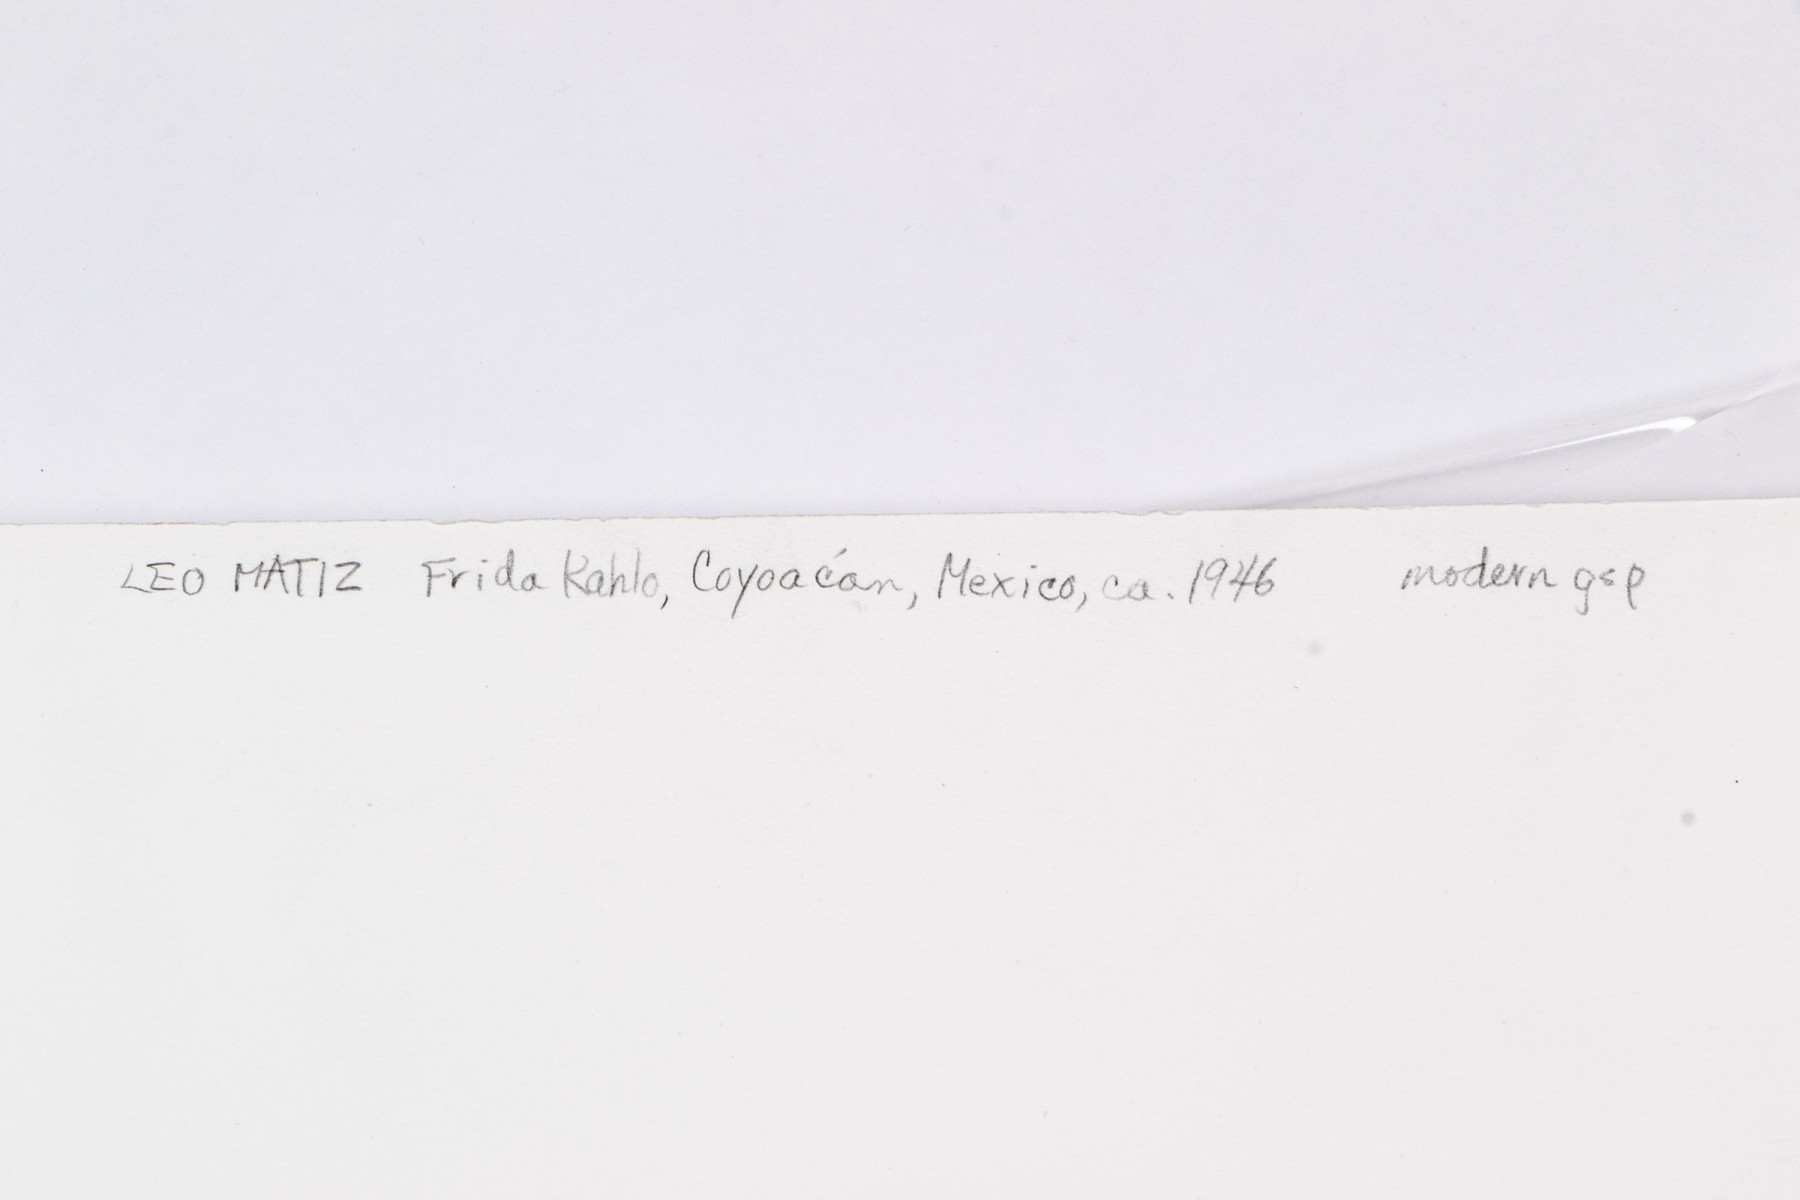 LEO MATIZ Frida Kahlo, Coyoacán, Mexico, ca. 1946 modern gsp